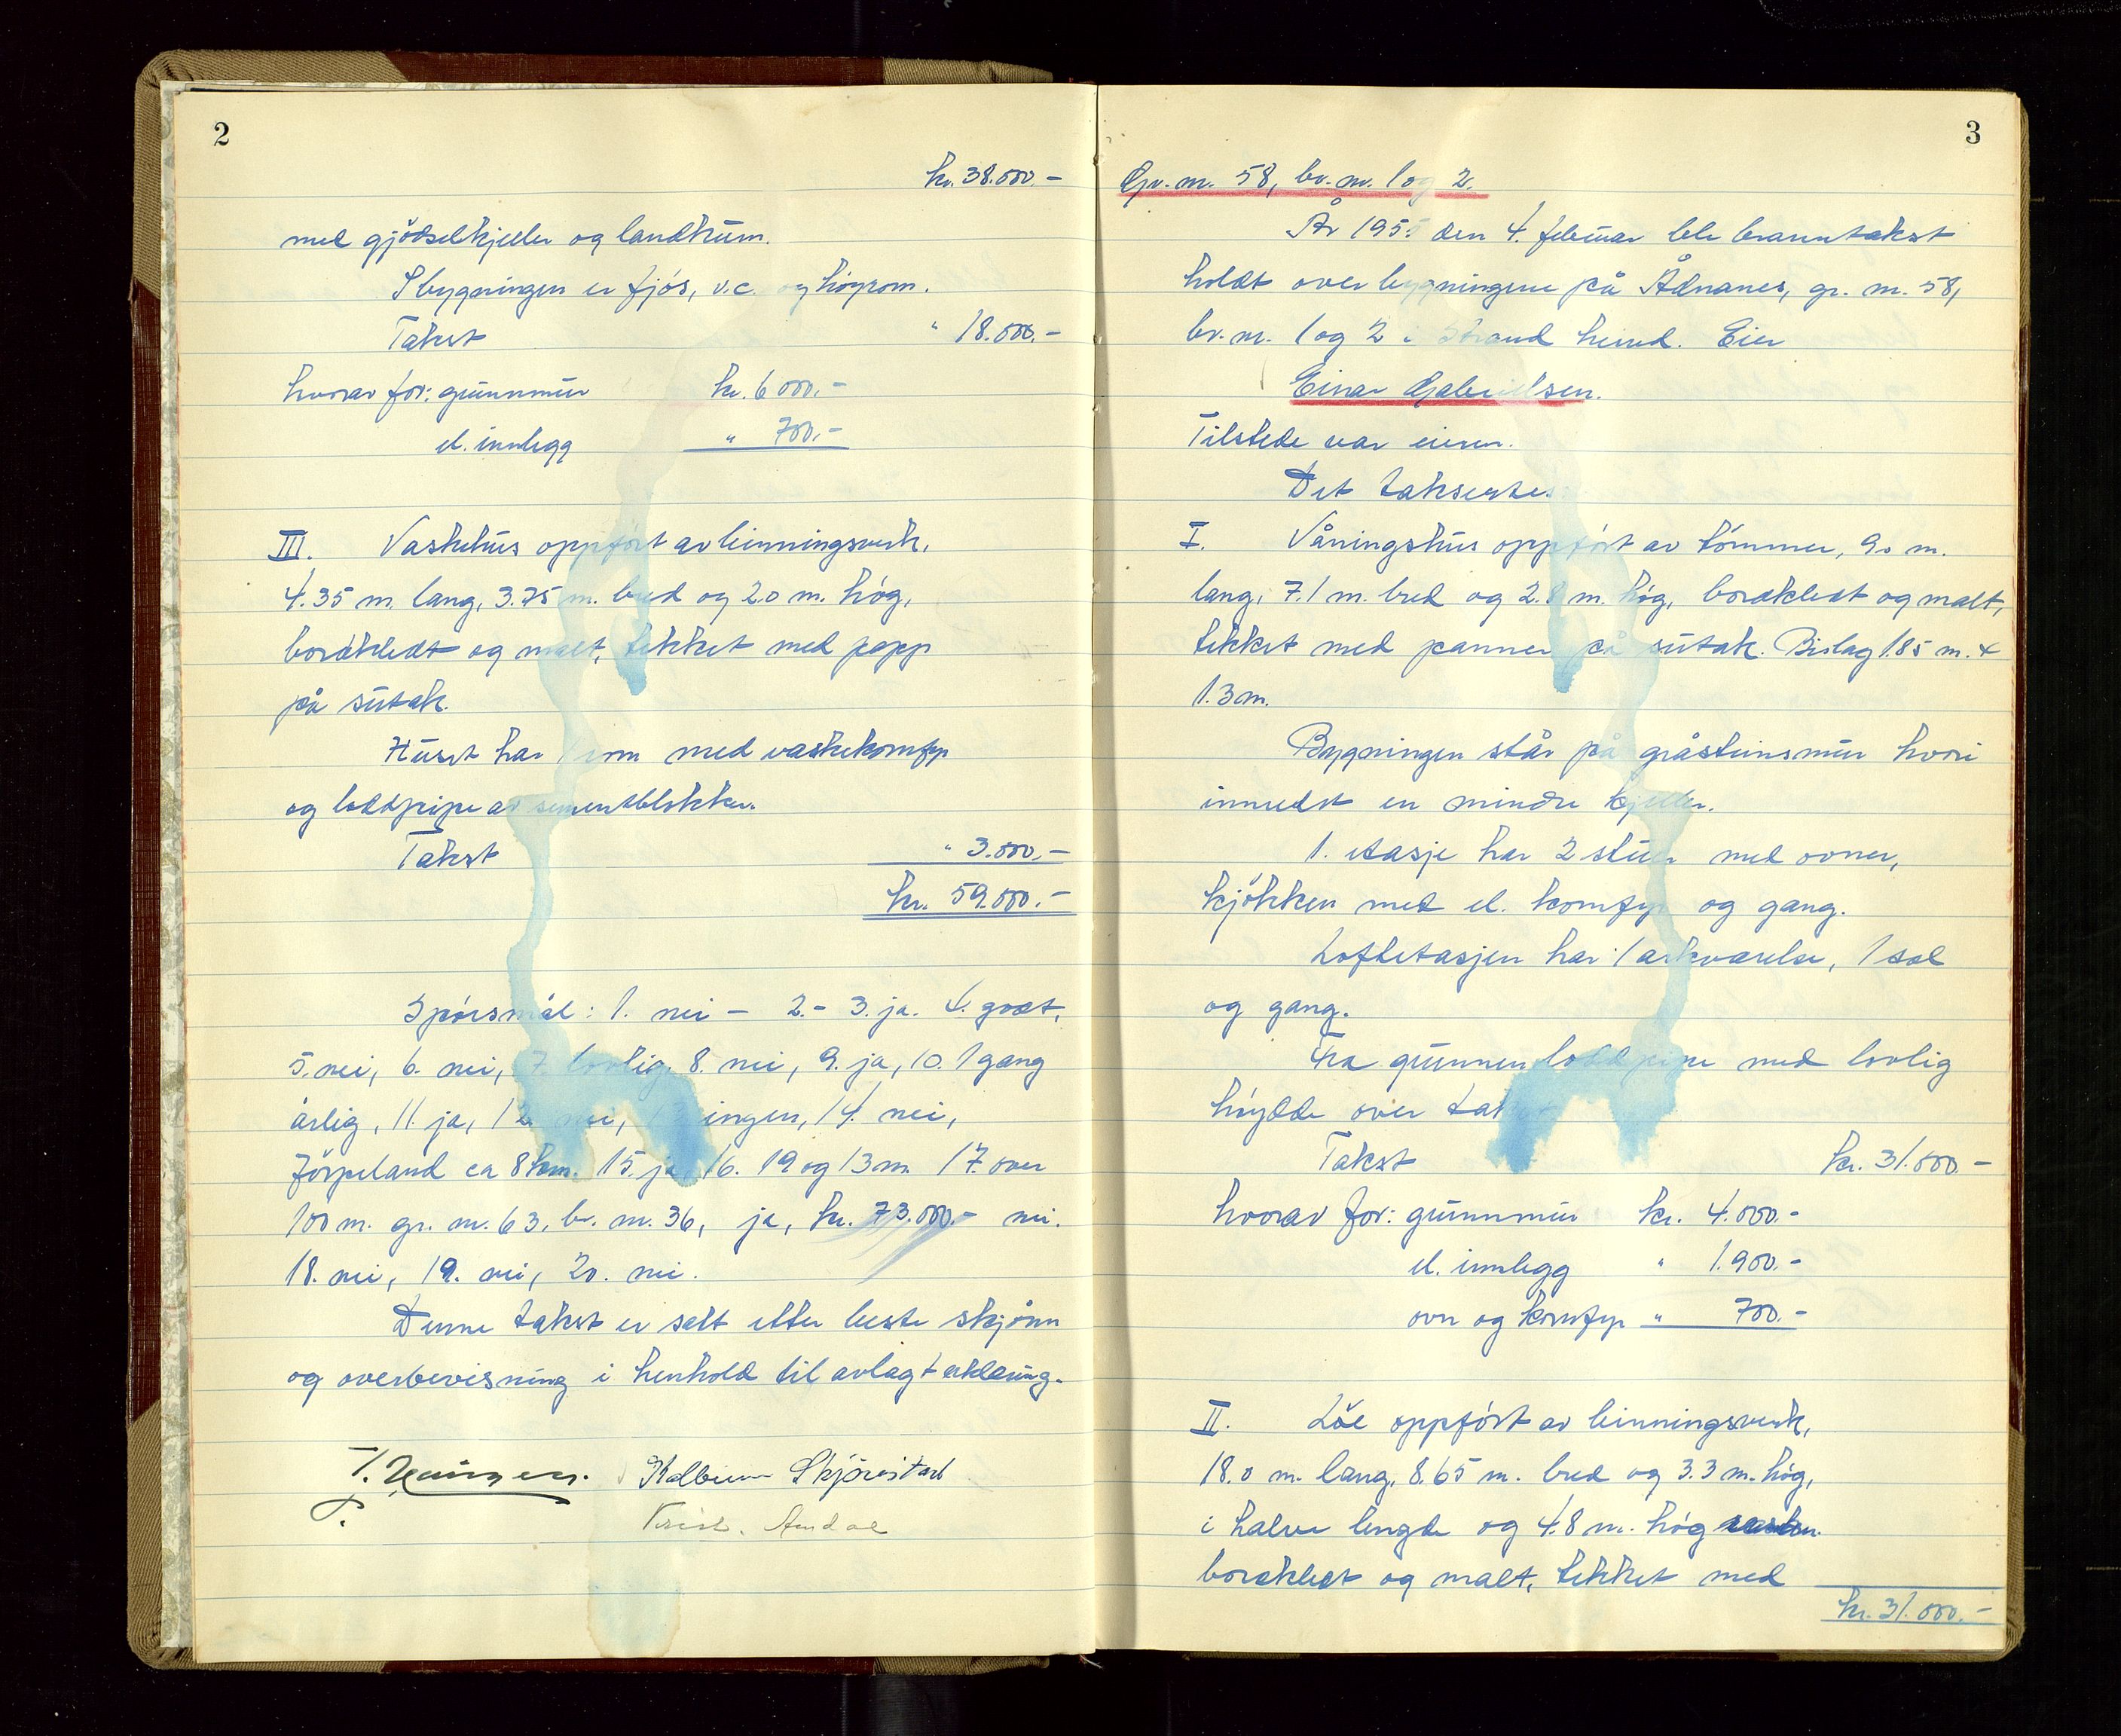 2
kr. 38.000.-
med gjödselkjeller og landkum.
I bygningen er fjós, v.c. og höyrom.
Takst " 18.000.-
hvorav for: grunnmur kr. 6000.-
el. innlegg " 700.-
III. Vaskehus oppfört av binningsverk,
4.35 m. lang, 3.75 m. bred og 2.0 m. hög,
bordkledt og malt, tekket med papp
på sutak.
Huset har 1 rom med vaskekomfyr
og loddpipe av sementblokker.
Takst " 3.000.-
kr. 59.000.-
Spörsmål: 1. nei - 2. - 3. ja. 4. godt,
5. nei, 6. nei, 7. lovlig. 8. nei, 9. ja, 10. 1 gang
årlig, 11. ja, 12. nei, 13. ingen, 14. nei,
Jörpeland ca 8 km. 15. ja 16. 19 og 13 m. 17. over
100 m. gr. nr. 63, br. nr. 36, ja, kr. 73.000.- nei.
18. nei, 19. nei, 20. nei.
Denne takst er satt etter beste skjönn
og overbevisning i henhold til avlagt erklæring.
Kolbein Skjörestad
Krist. Amdal
3
Gr. nr. 58, br. nr. 1 og 2.
År 1955 den 4. februar ble branntakst
holdt over bygningene på Ådnanes, gr. nr. 58,
br. nr. 1 og 2 i Strand herred. Eier
Einar Gabrielsen.
Tilstede var eieren.
Det takseres
I. Våningshus oppfört av tömmer, 9.0 m.
lang, 7.1 m. bred og 2.8 m. hög, bordkledt og malt,
tekket med panner på sutak. Bislag 1.85 m. x
1.3 m.
Bygningen står på gråsteinsmur hvori
innredet en mindre kjeller.
1. etasje har 2 stuer med ovner,
kjökken med el. komfyr og gang.
Loftetasjen har 1 arkværelse, 1 sal
og gang.
Fra grunnen loddpipe med lovlig
höyde over taket
Takst kr. 31.000.-
hvorav for: grunnmur kr. 4.000.-
el. innlegg " 1.900.-
ovn og komfyr " 700.-
II. Löe oppfört av binningsverk,
18.0 m. lang, 8.65 m. bred og 3.3 m. hög,
i halve lengde og 4.8 m. hög resten.
bordkledt og malt, tekket med
kr. 31.000.-